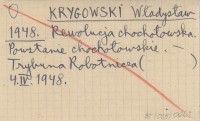 KRYGOWSKI Władysław
1948. Rewolucja chochołowska.
Powstanie chochołowskie. —
Trybuna Robotnicza (       )
4.IV.1948.